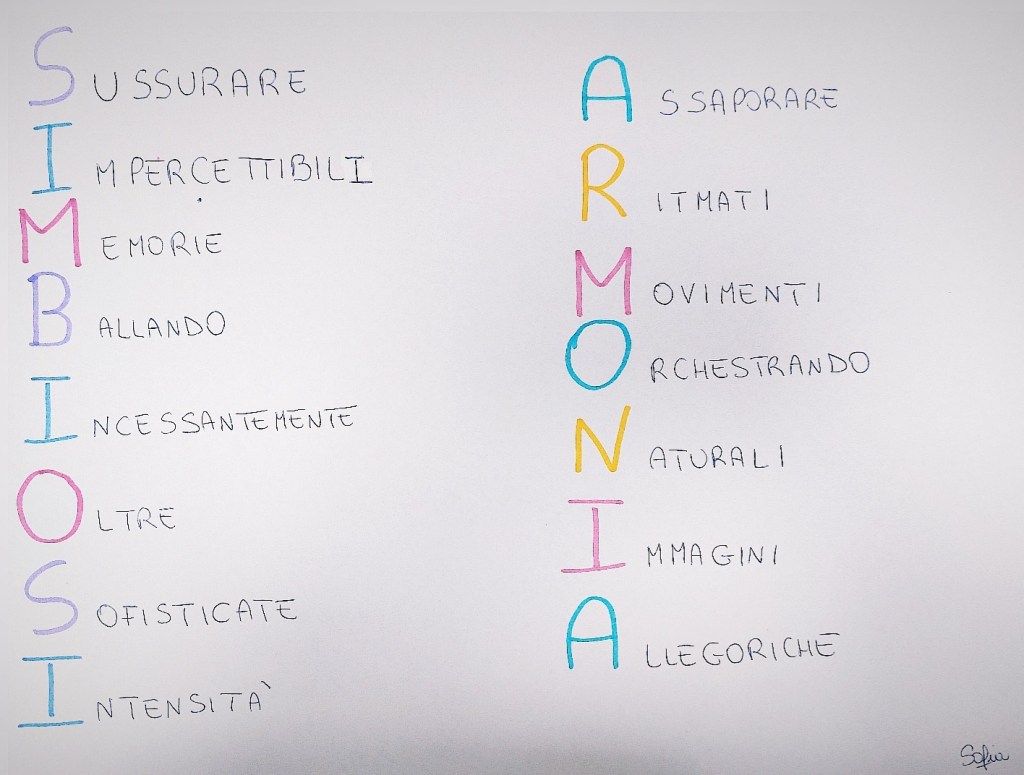 SUSSURARE
IMPERCETTIBILI
MEMORIE
BALLANDO
INCESSANTEMENTE
OLTRE
SOFISTICATE
INTENSITÀ
ASSAPORARE
RITMATI
MOVIMENTI
ORCHESTRANDO
NATURALI
IMMAGINI
ALLEGORICHE
Sofia